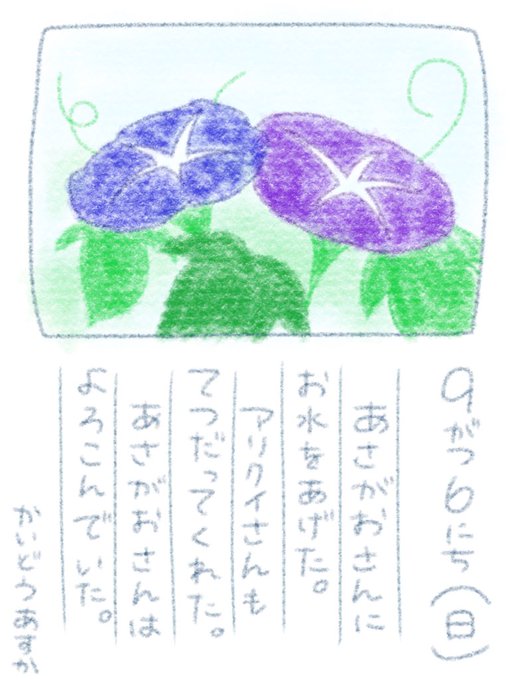 9がつ6にち(日)
あさがおさんに
お水をあげた。
アリクイさんも
てつだってくれた。
あさがおさんは
よろこんでいた。
かいどうあすか